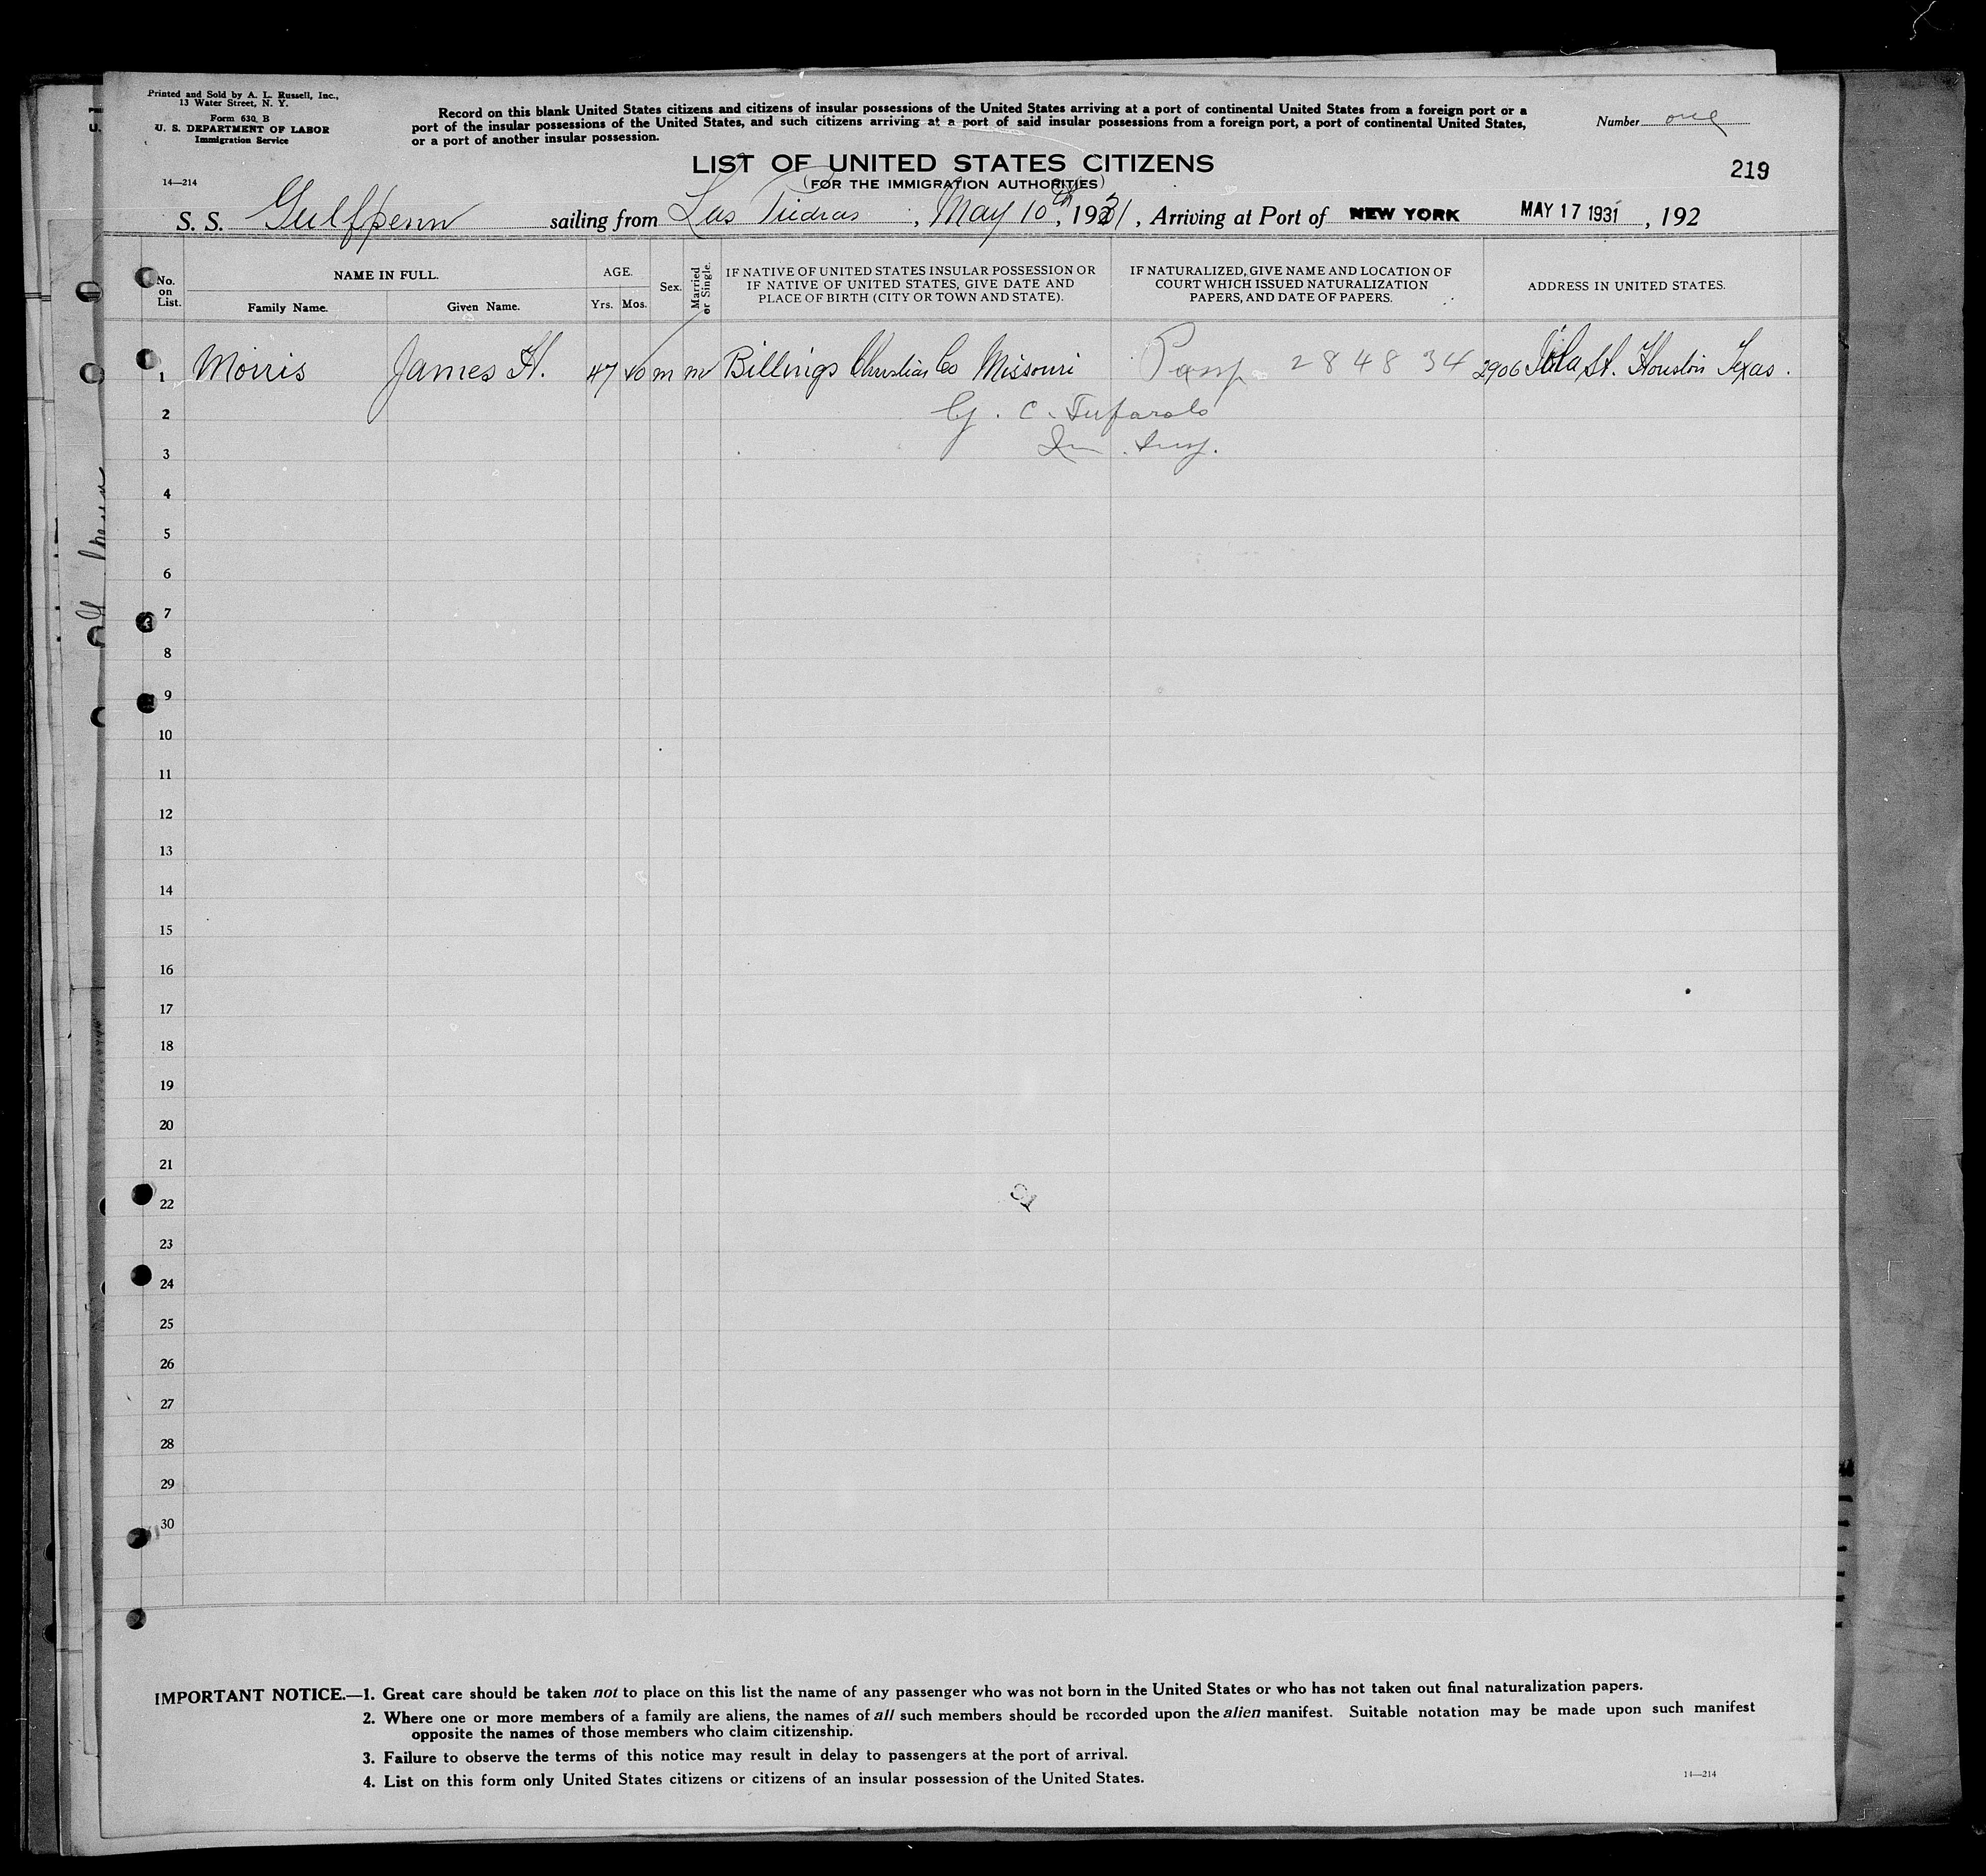 Printed and Sold by A. L. Russell, Inc.,
13 Water Street, N. Y.
Form 630 B
U. S. DEPARTMENT OF LABOR
Immigration Service
14—214
Record on this blank United States citizens and citizens of insular possessions of the United States arriving at a port of continental United States from a foreign port or a
port of the insular possessions of the United States, and such citizens arriving at a port of said insular possessions from a foreign port, a port of continental United States,
or a port of another insular possession.
Number one
LIST OF UNITED STATES CITIZENS
(FOR THE IMMIGRATION AUTHORITIES)
219
S. S. Gulfpenn sailing from Las Piedras, May 10th, 1931, Arriving at Port of NEW YORK MAY 17 1931, 192
No. on List.
NAME IN FULL.
Family Name. Given Name.
AGE.
Yrs. Mos.
Sex.
Married or Single.
IF NATIVE OF UNITED STATES INSULAR POSSESSION OR
IF NATIVE OF UNITED STATES, GIVE DATE AND
PLACE OF BIRTH (CITY OR TOWN AND STATE).
IF NATURALIZED, GIVE NAME AND LOCATION OF
COURT WHICH ISSUED NATURALIZATION
PAPERS, AND DATE OF PAPERS.
ADDRESS IN UNITED STATES.
1 Morris James H. 47 10 m m Billings Christian Co Missouri Pass 284834 2906 Iola St. Houston Texas.
2
3
4
5
6
7
8
9
10
11
12
13
14
15
16
17
18
19
20
21
22
23
24
25
26
27
28
29
30
IMPORTANT NOTICE.—1. Great care should be taken not to place on this list the name of any passenger who was not born in the United States or who has not taken out final naturalization papers.
2. Where one or more members of a family are aliens, the names of all such members should be recorded upon the alien manifest. Suitable notation may be made upon such manifest
opposite the names of those members who claim citizenship.
3. Failure to observe the terms of this notice may result in delay to passengers at the port of arrival.
4. List on this form only United States citizens or citizens of an insular possession of the United States.
14—214